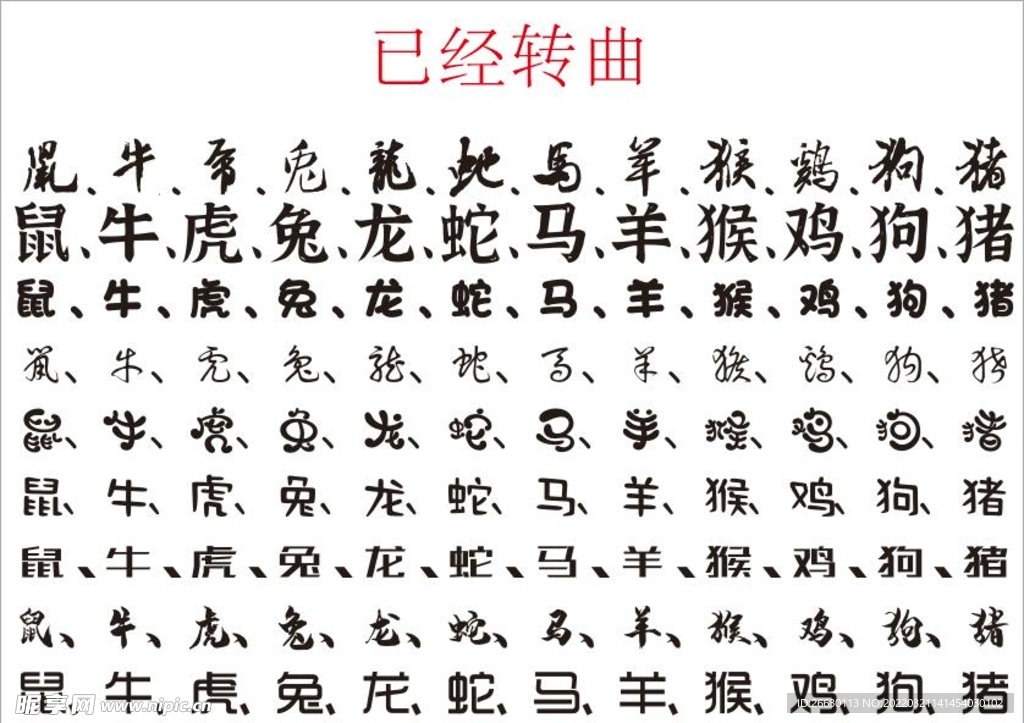 已经转曲
鼠、牛、虎、兔、龍、蛇、馬、羊、猴、鷄、狗、猪
鼠、牛、虎、兔、龙、蛇、马、羊、猴、鸡、狗、猪
鼠、牛、虎、兔、龙、蛇、马、羊、猴、鸡、狗、猪
鼠、牛、虎、兔、龙、蛇、马、羊、猴、鸡、狗、猪
鼠、牛、虎、兔、龙、蛇、马、羊、猴、鸡、狗、猪
鼠、牛、虎、兔、龙、蛇、马、羊、猴、鸡、狗、猪
鼠、牛、虎、兔、龙、蛇、马、羊、猴、鸡、狗、猪
鼠、牛、虎、兔、龙、蛇、马、羊、猴、鸡、狗、猪
鼠、牛、虎、兔、龙、蛇、马、羊、猴、鸡、狗、猪
昵享网 www.nipic.cn
ID:26680113 NO:20220321141454030102